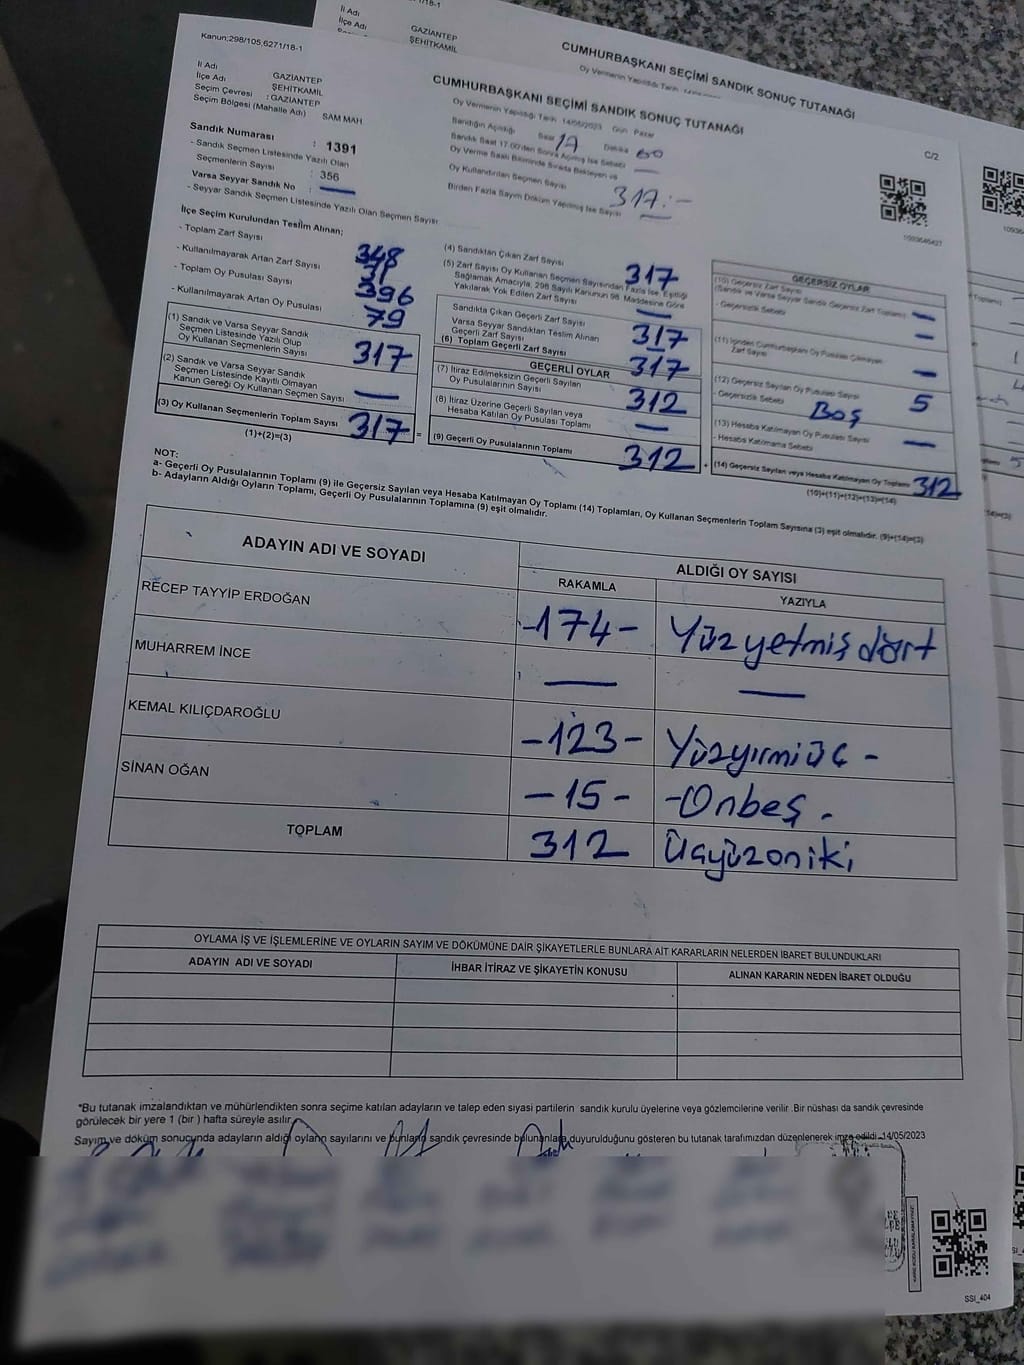 Kanun;298/105,6271/18-1
İl Adı GAZİANTEP
İlçe Adı ŞEHİTKAMİL
Seçim Çevresi : GAZİANTEP
Seçim Bölgesi (Mahalle Adı) SAM MAH
CUMHURBAŞKANI SEÇİMİ SANDIK SONUÇ TUTANAĞI
Oy Vermenin Yapıldığı Tarih 14/05/2023 Gün Pazar
C/2
Sandık Numarası : 1391
- Sandık Seçmen Listesinde Yazılı Olan
Seçmenlerin Sayısı : 356
Varsa Seyyar Sandık No
- Seyyar Sandık Seçmen Listesinde Yazılı Olan Seçmen Sayısı
Sandığın Açıldığı Saat 17 Dakika
Sandık Saat 17.00'den Sonra Açılmış İse Sebebi
Oy Verme Saati Bitiminde Sırada Bekleyen ve
Oy Kullandırılan Seçmen Sayısı
Birden Fazla Sayım Döküm Yapılmış İse Sayısı
317
İlçe Seçim Kurulundan Teslim Alınan;
- Toplam Zarf Sayısı 348
- Kullanılmayarak Artan Zarf Sayısı 31
- Toplam Oy Pusulası Sayısı 396
- Kullanılmayarak Artan Oy Pusulası 79
(1) Sandık ve Varsa Seyyar Sandık
Seçmen Listesinde Yazılı Olup
Oy Kullanan Seçmenlerin Sayısı 317
(2) Sandık ve Varsa Seyyar Sandık
Seçmen Listesinde Kayıtlı Olmayan
Kanun Gereği Oy Kullanan Seçmen Sayısı
(3) Oy Kullanan Seçmenlerin Toplam Sayısı 317
(1)+(2)=(3)
(4) Sandıktan Çıkan Zarf Sayısı 317
(5) Zarf Sayısı Oy Kullanan Seçmen Sayısından Fazla İse Eşitliği
Sağlamak Amacıyla, 298 Sayılı Kanunun 98. Maddesine Göre
Yakılarak Yok Edilen Zarf Sayısı
Sandıkta Çıkan Geçerli Zarf Sayısı 317
Varsa Seyyar Sandıktan Teslim Alınan
Geçerli Zarf Sayısı
(6) Toplam Geçerli Zarf Sayısı 317
GEÇERLİ OYLAR
(7) İtiraz Edilmeksizin Geçerli Sayılan
Oy Pusulalarının Sayısı 312
(8) İtiraz Üzerine Geçerli Sayılan veya
Hesaba Katılan Oy Pusulası Toplamı
(9) Geçerli Oy Pusulalarının Toplamı 312
GEÇERSİZ OYLAR
(10) Geçersiz Zarf Sayısı
(Sandık ve Varsa Seyyar Sandık Geçersiz Zarf Toplamı)
- Geçersizlik Sebebi
(11) İçinden Cumhurbaşkanı Oy Pusulası Çıkmayan
Zarf Sayısı
(12) Geçersiz Sayılan Oy Pusulası Sayısı 5
- Geçersizlik Sebebi Boş
(13) Hesaba Katılmayan Oy Pusulası Sayısı
- Hesaba Katılmama Sebebi
(14) Geçersiz Sayılan veya Hesaba Katılmayan Oy Toplamı 312
(10)+(11)+(12)+(13)=(14)
NOT:
a- Geçerli Oy Pusulalarının Toplamı (9) ile Geçersiz Sayılan veya Hesaba Katılmayan Oy Toplamı (14) Toplamları, Oy Kullanan Seçmenlerin Toplam Sayısına (3) eşit olmalıdır. (9)+(14)=(3)
b- Adayların Aldığı Oyların Toplamı, Geçerli Oy Pusulalarının Toplamına (9) eşit olmalıdır.
ADAYIN ADI VE SOYADI
ALDIĞI OY SAYISI
RAKAMLA YAZIYLA
RECEP TAYYİP ERDOĞAN -174- Yüzyetmişdört
MUHARREM İNCE
KEMAL KILIÇDAROĞLU -123- Yüzyirmiüç -
SİNAN OĞAN -15- -Onbeş.
TOPLAM 312 Üçyüzoniki
OYLAMA İŞ VE İŞLEMLERİNE VE OYLARIN SAYIM VE DÖKÜMÜNE DAİR ŞİKAYETLERLE BUNLARA AİT KARARLARIN NELERDEN İBARET BULUNDUKLARI
ADAYIN ADI VE SOYADI İHBAR İTİRAZ VE ŞİKAYETİN KONUSU ALINAN KARARIN NEDEN İBARET OLDUĞU
*Bu tutanak imzalandıktan ve mühürlendikten sonra seçime katılan adayların ve talep eden siyasi partilerin sandık kurulu üyelerine veya gözlemcilerine verilir .Bir nüshası da sandık çevresinde
görülecek bir yere 1 (bir ) hafta süreyle asılır.
Sayım ve döküm sonucunda adayların aldığı oyların sayılarını ve bunların sandık çevresinde bulunanlara duyurulduğunu gösteren bu tutanak tarafımızdan düzenlenerek imza edildi. 14/05/2023
SSI_404
İl Adı GAZİANTEP
İlçe Adı ŞEHİTKAMİL
CUMHURBAŞKANI SEÇİMİ SANDIK SONUÇ TUTANAĞI
Oy Vermenin Yapıldığı Tarih